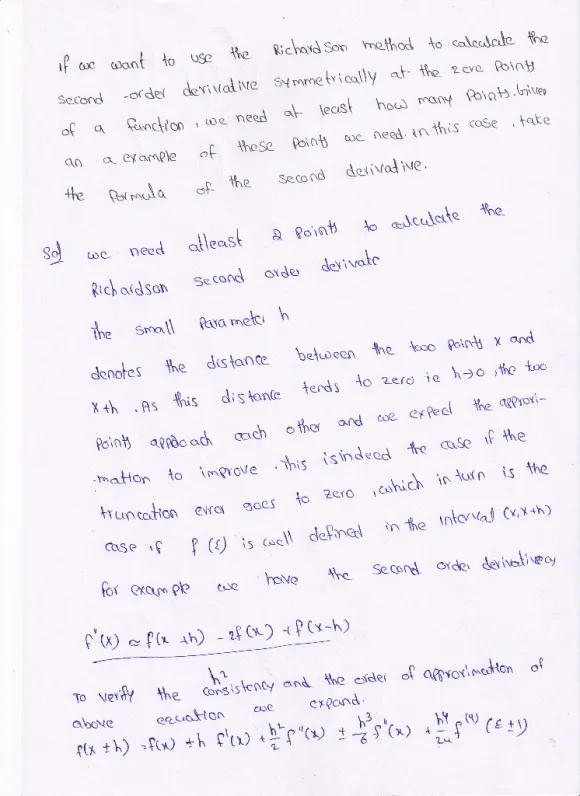 if we want to use the Richardson method to calculate the
second -order derivative symmetrically at the zero points
of a function, we need at least how many points. Given
an a example of these points we need. in this case, take
the formula of the second derivative.
Sol we need atleast 2 points to calculate the
Richardson second order derivate
The small Parameter h
denotes the distance between the two points x and
x+h. As this distance tends to zero ie h→0, the two
points approach each other and we expect the approxi-
-mation to improve. This is indeed the case if the
truncation error goes to zero, which in turn is the
case if f (ξ) is well defined in the interval (x, x+h)
for example we have the second order derivative
f'(x) ≈ f(x +h) - 2f (x) + f(x-h)
h²
To verify the consistency and the order of approximation of
above equation we expand.
f(x ± h) = f(x) ± h f'(x) + h²/2 f''(x) ± h³/6 f''(x) + h⁴/24 f⁽⁴⁾ (ε ± 1)